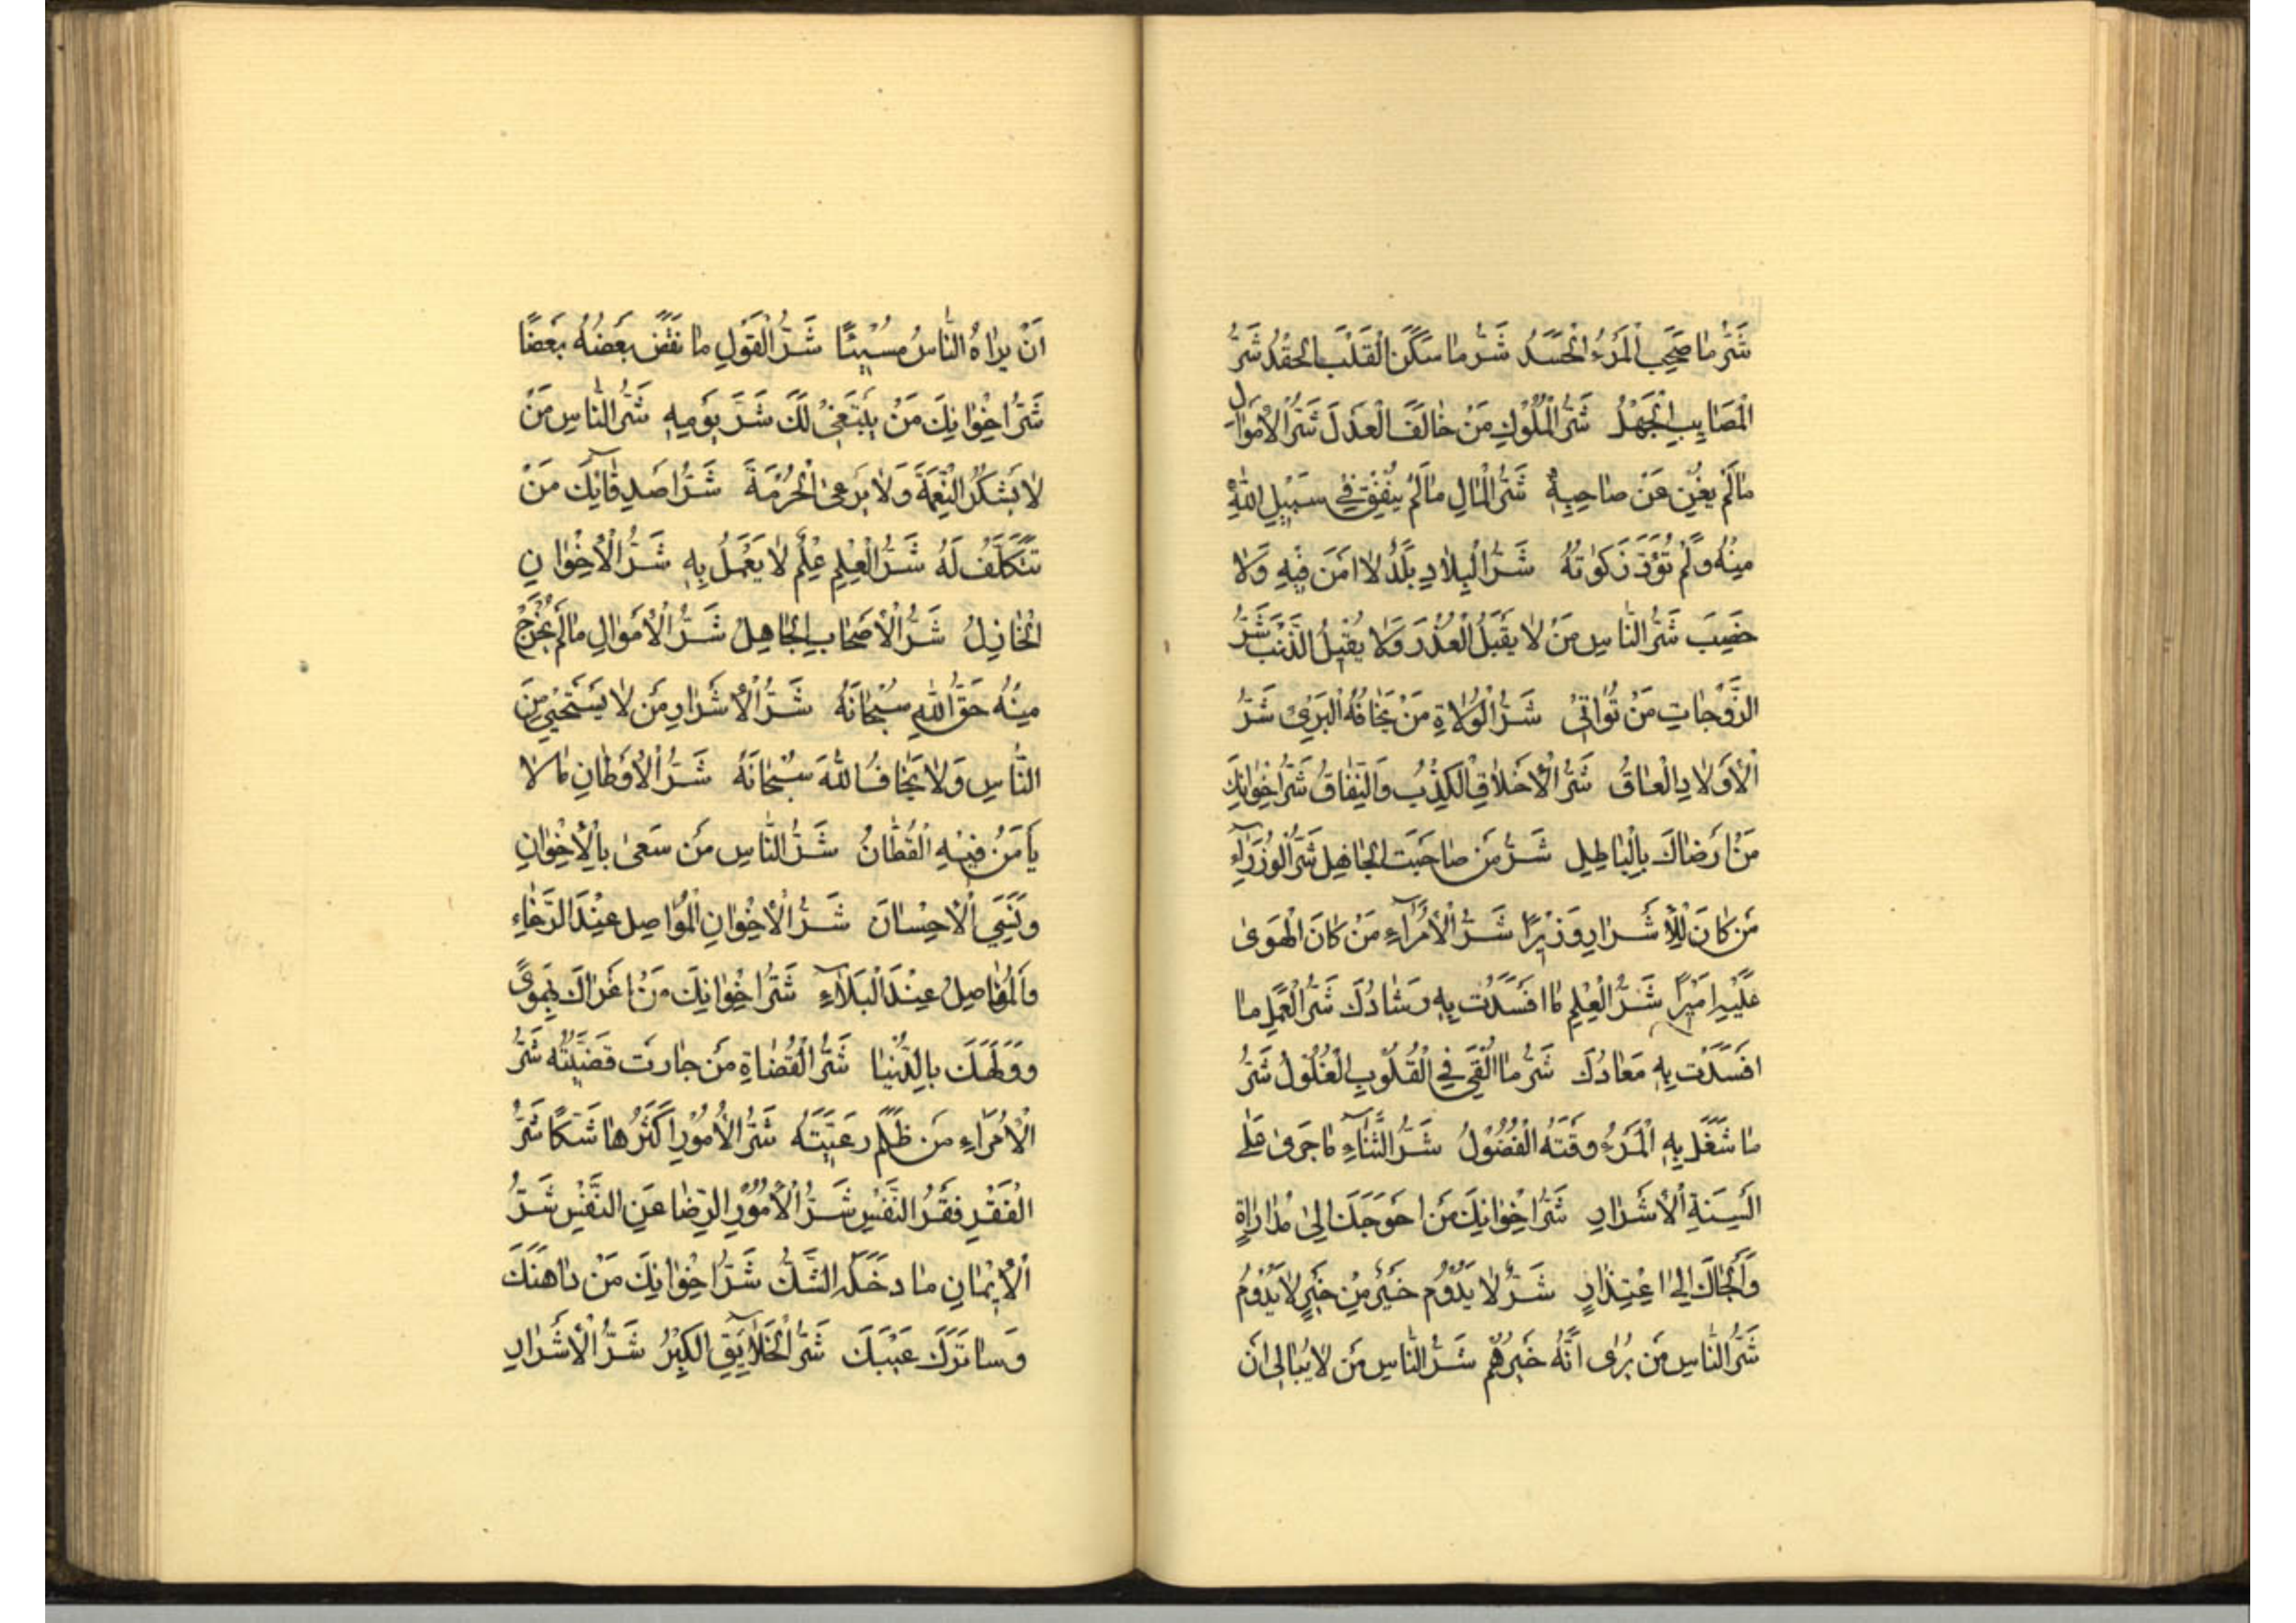 شَرُّ مٰا صَحِبَ الْمَرْءَ الْحَسَدُ شَرُّ مٰا سَكَنَ الْقَلْبَ الْحِقْدُ شَرُّ
الْمَصٰايِبِ الْجَهْلُ شَرُّ الْمُلُوكِ مَنْ خٰالَفَ الْعَدْلَ شَرُّ الْأَمْوٰالِ
مٰا لَمْ يُغْنِ عَنْ صٰاحِبِهِ شَرُّ الْمٰالِ مٰا لَمْ يُنْفَقْ فِي سَبِيْلِ اللّٰهِ
مِنْهُ وَلَمْ تُؤَدَّ زَكٰوتُهُ شَرُّ الْبِلٰادِ بَلَدٌ لٰا اَمْنَ فِيْهِ وَلٰا
خَصِيبَ شَرُّ النّٰاسِ مَنْ لٰا يَقْبَلُ الْعُذْرَ وَلٰا يُقِيْلُ الذَّنْبَ شَرُّ
الزَّوْجٰاتِ مَنْ تُوٰاتِيْ شَرُّ الْوُلٰاةِ مَنْ يَخٰافُهُ الْبَرِيْ شَرُّ
الْأَوْلٰادِ الْعٰاقُّ شَرُّ الْأَخْلٰاقِ الْكَذِبُ وَالنِّفٰاقُ شَرُّ اِخْوٰانِكَ
مَنْ اَرْضٰاكَ بِالْبٰاطِلِ شَرُّ مَنْ صٰاحَبْتَ الْجٰاهِل شَرُّ الْوُزَرٰاءِ
مَنْ كٰانَ لِلْأَشْرٰارِ وَزِيْرًا شَرُّ الْأُمَرٰاءِ مَنْ كٰانَ الْهَوىٰ
عَلَيْهِ اَمِيْرًا شَرُّ الْعِلْمِ مٰا اَفْسَدْتَ بِهِ رَشٰادَكَ شَرُّ الْعَمَلِ مٰا
اَفْسَدْتَ بِهِ مَعٰادَكَ شَرُّ مٰا اُلْقِيَ فِي الْقُلُوْبِ الْغُلُوْلُ شَرُّ
مٰا شَغَلَ بِهِ الْمَرْءُ وَقْتَهُ الْفُضُوْلُ شَرُّ الثَّنٰاءِ مٰا جَرىٰ عَلىٰ
اَلْسِنَةِ الْأَشْرٰارِ شَرُّ اِخْوٰانِكَ مَنْ اَحْوَجَكَ اِلىٰ مُدٰارٰاةٍ
وَاَلْجَاكَ اِلىٰ اعْتِذٰارٍ شَرٌّ لٰا يَدُوْمُ خَيْرٌ مِنْ خَيْرٍ لٰا يَدُوْمُ
شَرُّ النّٰاسِ مَنْ يُرٰى اَنَّهُ خَيْرُهُمْ شَرُّ النّٰاسِ مَنْ لٰا يُبٰالِي اَنْ
اَنْ يرٰاهُ النّٰاسُ مُسِيْئًا شَرُّ الْقَوْلِ مٰا نَقَضَ بَعْضُهُ بَعْضًا
شَرُّ اِخْوٰانِكَ مَنْ يَبْتَغِيْ لَكَ شَرَّ يَوْمِهِ شَرُّ النّٰاسِ مَنْ
لٰا يَشْكُرُ النِّعْمَةَ وَلٰا يَرْعَى الْحُرْمَةَ شَرُّ اَصْدِقٰائِكَ مَنْ
تَتَكَلَّفُ لَهُ شَرُّ الْعِلْمِ عِلْمٌ لٰا يَعْمَلُ بِهِ شَرُّ الْأِخْوٰانِ
الْخٰاذِلُ شَرُّ الْأَصْحٰابِ الْجٰاهِلُ شَرُّ الْأَمْوٰالِ مٰا لَمْ يُخْرَجْ
مِنْهُ حَقُّ اللّٰهِ سُبْحٰانَهُ شَرُّ الْأَشْرٰارِ مَنْ لٰا يَسْتَحْيِيْ مِنَ
النّٰاسِ وَلٰا يَخٰافُ اللّٰهَ سُبْحٰانَهُ شَرُّ الْأَوْطٰانِ مٰا لٰا
يَأْمَنُ فِيْهِ الْقُطّٰانُ شَرُّ النّٰاسِ مَنْ سَعىٰ بِالْأِخْوٰانِ
وَنَسِيَ الْأِحْسٰانَ شَرُّ الْأِخْوٰانِ الْمُوٰاصِل عِنْدَ الرَّخٰاءِ
وَالْمُفٰاصِلُ عِنْدَ الْبَلٰاءِ شَرُّ اِخْوٰانِكَ مَنْ اَغْرٰاكَ بِهَوًى
وَوَلَّهَكَ بِالدُّنْيٰا شَرُّ الْقُضٰاةِ مَنْ جٰارَتْ قَضِيَّتُهُ شَرُّ
الْأُمَرٰاءِ مَنْ ظَلَمَ رَعِيَّتَهُ شَرُّ الْأُمُوْرِ اَكْثَرُهٰا شَكًّا شَرُّ
الْفَقْرِ فَقْرُ النَّفْسِ شَرُّ الْأُمُوْرِ الرِّضٰا عَنِ النَّفْسِ شَرُّ
الْإِيْمٰانِ مٰا دَخَلَهُ الشَّكُّ شَرُّ اِخْوٰانِكَ مَنْ دٰاهَنَكَ
وَسٰاتَرَكَ عَيْبَكَ شَرُّ الْخَلٰايِقِ الْكِبْرُ شَرُّ الْأَشْرٰارِ